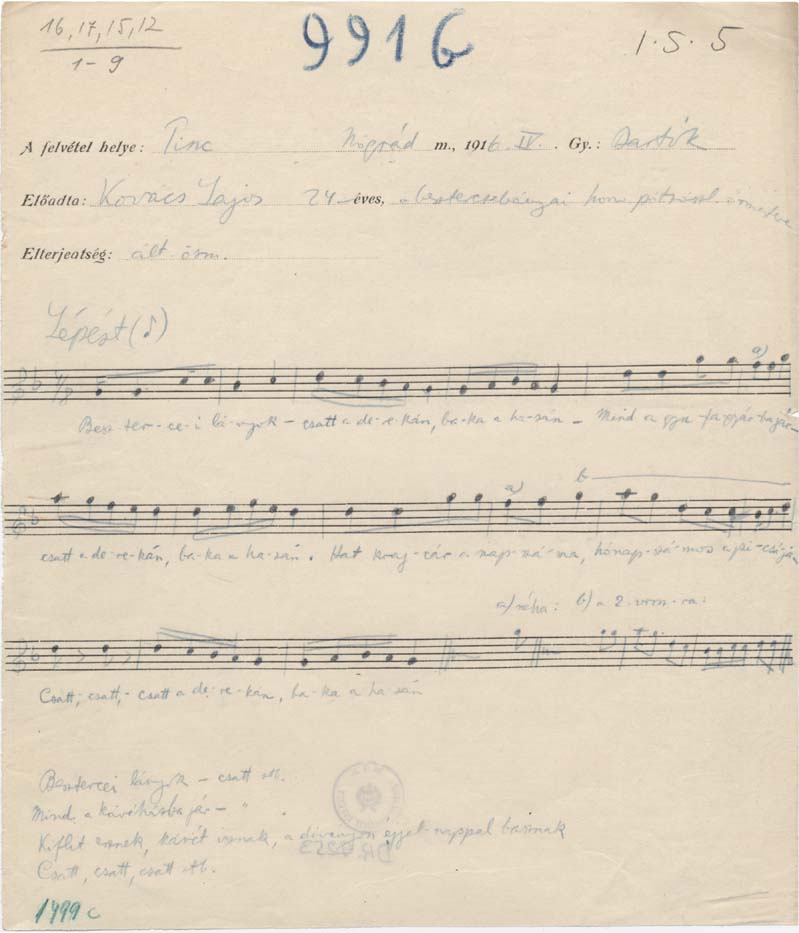 16, 17, 15, 12
1-9
9916
I. S. 5
A felvétel helye: Tinc Nógrád m., 1916. IV. Gy.: Bartók
Előadta: Kovács Lajos 24 éves, a besztercebányai honv. őrmestere
Elterjeatség: ált. ösm.
Lépést (♪)
a)
Besz-ter-ce-i lá-nyok - csatt a de-re-kán, ba-ka a ha-sán - Mind a gyu-fa-gyár-ba jár-
a) b
csatt a de-re-kán, ba-ka a ha-sán. Hat kraj-cár a nap-szá-ma, hónap-szá-mos a pi-csá-ja,
a) néha: b) a 2. vrsn.-ra:
Csatt, csatt, - csatt a de-re-kán, ba-ka a ha-sán
Besztercei lányok - csatt stb.
Mind a kávéházba jár - "
Kiflit esznek, kávét isznak, a diványon éjjel-nappal basznak
Csatt, csatt, csatt stb.
1499 c